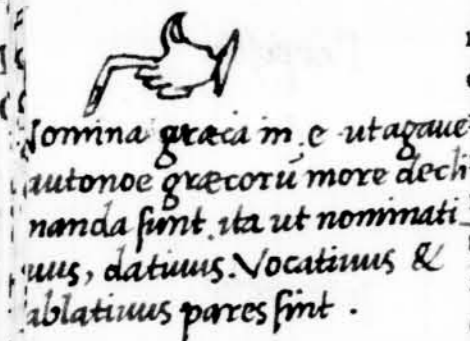 Nomina græca in .e. ut agaue
autonoe græcorū more decli
nanda sunt. ita ut nominati
uus, datiuus. Vocatiuus &
ablatiuus pares sint .